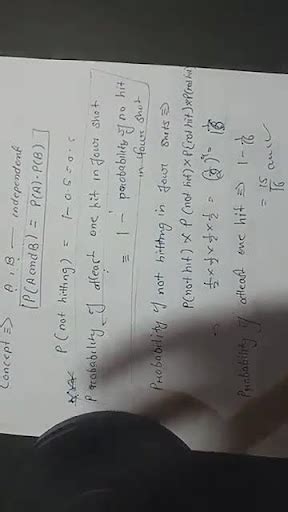 Concept ⇒ A, B — independent
P(A and B) = P(A) · P(B)
P(not hitting) = 1 - 0.5 = 0.5
Probability of atleast one hit in four shot
= 1 - probability of no hit
in four shot
Probability of not hitting in four shots ⇒
P(not hit) × P(not hit) × P(not hit) × P(not hit)
⇒ 1/2 × 1/2 × 1/2 × 1/2 = (1/2)^4 = 1/16
Probability of atleast one hit ⇒ 1 - 1/16
= 15/16